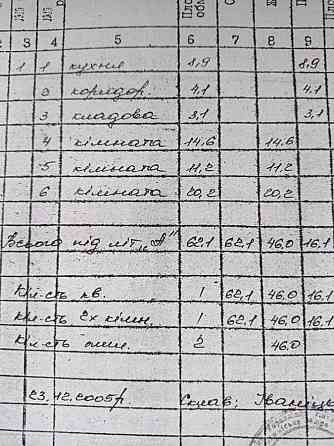 2 3 4 5 6 7 8 9
1 1 кухня 8,9 8,9
2 коридор. 4,1 4,1
3 кладова 3,1 3,1
4 кімната 14,6 14,6
5 кімната 11,2 11,2
6 кімната 20,2 20,2
Всього під літ. „А" 62,1 62,1 46,0 16,1
Кіл-сть кв. 1 62,1 46,0 16,1
Кіл-сть 3х кімн. 1 62,1 46,0 16,1
Кіл-сть 2 46,0
23.12.2005р. Склав: